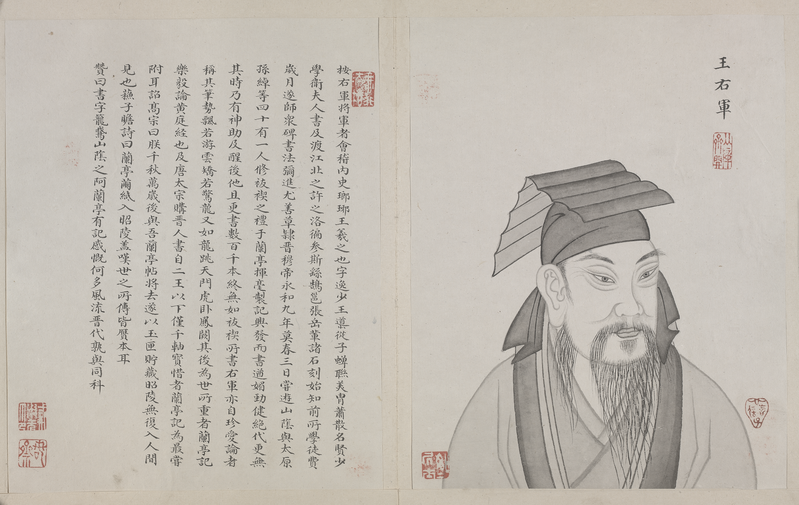 王右軍
按右軍將軍者會稽內史瑯琊王羲之也字逸少王導從子蟬聯美冑蕭散名賢少
學衛夫人書及渡江北之許之洛徧參斯繇鵠邕張岳華諸石刻始知前所學徒費
歲月遂師眾碑書法彌進尤善草隸晉穆帝永和九年莫春三日嘗遊山陰與太原
孫綽等四十有一人修祓禊之禮于蘭亭揮亭製記興發而書遒媚勁健絕代更無
其時乃有神助及醒後他日更書數百千本終無如祓禊所書右軍亦自珍愛論者
稱其筆勢飄若游雲矯若驚龍又如龍跳天門虎臥鳳闕其後為世所重者蘭亭記
樂毅論黃庭經也及唐太宗購晉人書自二王以下僅千軸寶惜者蘭亭記為最嘗
附耳詔高宗曰朕千秋萬歲後與吾蘭亭帖將去遂以玉匣貯藏昭陵無復入人間
見也蘇子瞻詩曰蘭亭繭紙入昭陵蓋嘆世之所傳皆贗本耳
贊曰書字籠鵞山陰之阿蘭亭有記感慨何多風流晉代孰與同科